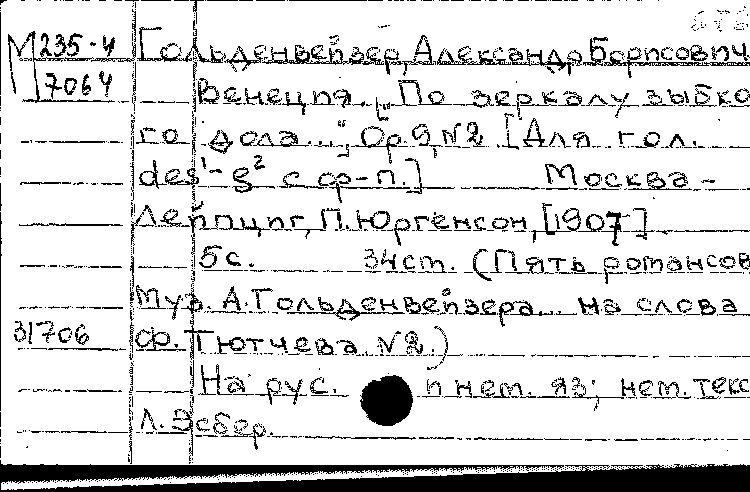 М235-4 Гольденвейзер, Александр Борисович
7064 Венеция. ["По зеркалу зыбко
го дола..."], Ор.9, №2. [Для гол.
des¹-g² с ф-п.] Москва -
Лейпциг, П. Юргенсон, [1907].
5с. 34см. (Пять романсов
Муз. А. Гольденвейзера... на слова
31706 Ф. Тютчева. №2.)
На рус. и нем. яз; нем. текс
Л. Эсбер.